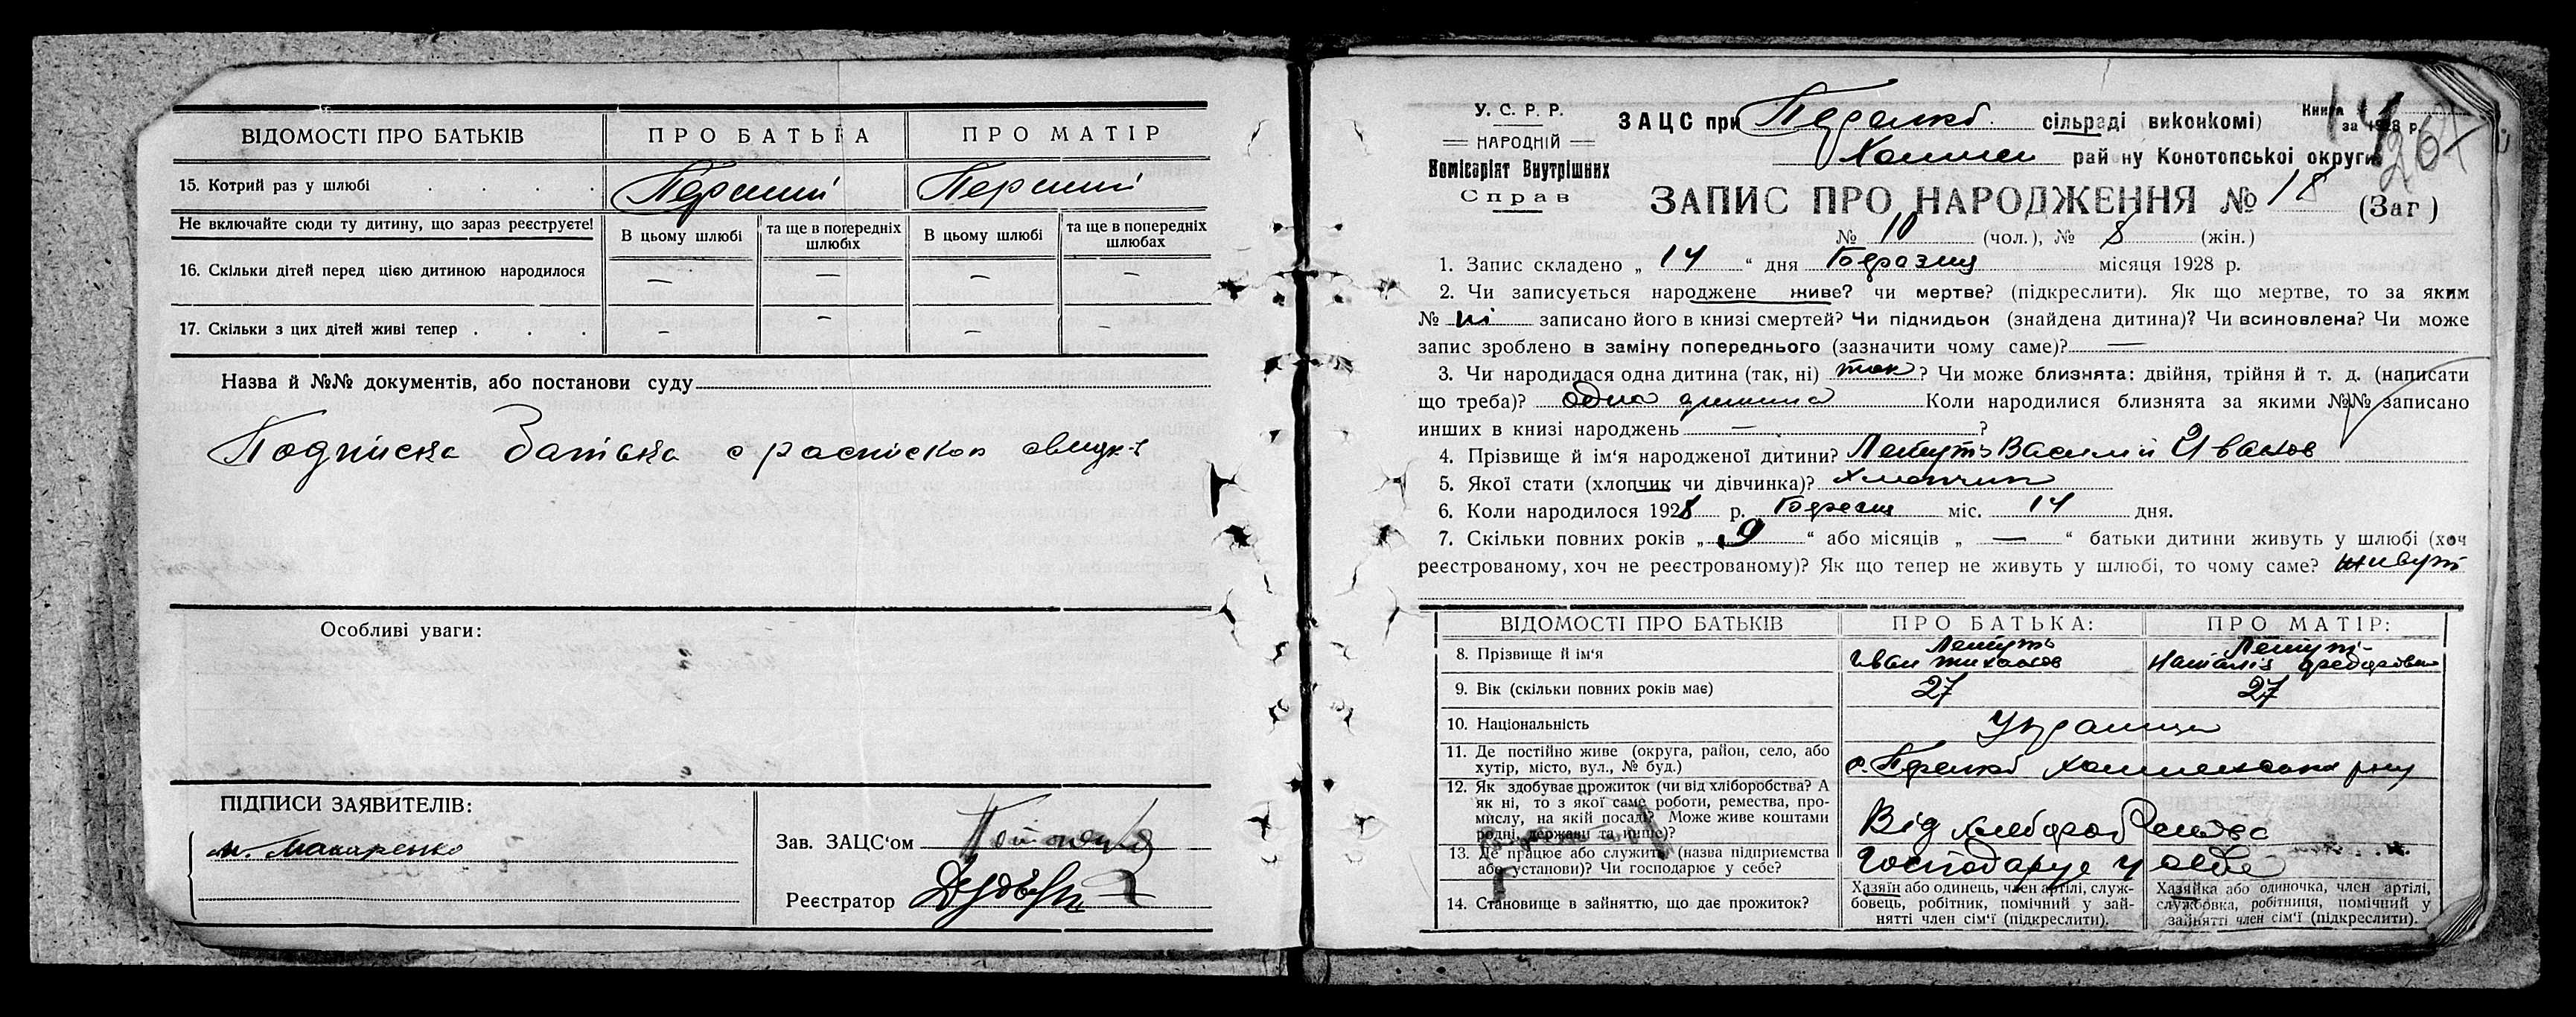 ВІДОМОСТІ ПРО БАТЬКІВ
ПРО БАТЬКА
ПРО МАТІР
15. Котрий раз у шлюбі
Перший
Перший
Не включайте сюди ту дитину, що зараз реєструєте!
В цьому шлюбі
та ще в попередніх шлюбіх
В цьому шлюбі
та ще в попередніх шлюбах
16. Скільки дітей перед цією дитиною народилося — — — —
17. Скільки з цих дітей живі тепер — — — —
Назва й №№ документів, або постанови суду
Подписка Батька с
Особливі уваги:
ПІДПИСИ ЗАЯВИТЕЛІВ:
Макаренко
Зав. ЗАЦС‘ом
Реєстратор
У. С. Р. Р.
НАРОДНІЙ
Комісаріят Внутрішних
Справ
ЗАЦС при сільраді виконкомі)
Книга
за 1928 р.
267
району Конотопської округи
ЗАПИС ПРО НАРОДЖЕННЯ № 18 (Заг)
№ 10 (чол.), № 8 (жін.)
1. Запис складено „ 14 “ дня місяця 1928 р.
2. Чи записується народжене живе? чи мертве? (підкреслити). Як що мертве, то за яким
№ ні записано його в книзі смертей? Чи підкидьок (знайдена дитина)? Чи всиновлена? Чи може
запис зроблено в заміну попереднього (зазначити чому саме)? —
3. Чи народилася одна дитина (так, ні) так? Чи може близнята: двійня, трійня й т. д. (написати
що треба)? одна дитина Коли народилися близнята за якими №№ записано
инших в книзі народжень — ?
4. Прізвище й ім‘я народженої дитини? Василий Иванов
5. Якої стати (хлопчик чи дівчинка)? Хлопчик
6. Коли народилося 1928 р. міс. 14 дня.
7. Скільки повних років „ 9 “ або місяців „ — “ батьки дитини живуть у шлюбі (хоч
реєстрованому, хоч не реєстрованому)? Як що тепер не живуть у шлюбі, то чому саме? живут
ВІДОМОСТІ ПРО БАТЬКІВ
ПРО БАТЬКА:
ПРО МАТІР:
8. Прізвище й ім‘я
Иван
Наталія
9. Вік (скільки повних років має)
27
27
10. Національність
Українци
11. Де постійно живе (округа, район, село, або
хутір, місто, вул., № буд.)
с.
12. Як здобуває прожиток (чи від хліборобства? А
як ні, то з якої саме роботи, ремества, про-
мислу, на якій посаді? Може живе коштами
родні, держави та инше)?
Від хлеборобства
13. Де працює або служить (назва підприємства
або установи)? Чи господарює у себе?
Господарує у себе
14. Становище в зайняттю, що дає прожиток?
Хазяїн або одинець, член артілі, служ-
бовець, робітник, помічний у зай-
нятті член сім‘ї (підкреслити).
Хазяйка або одиночка, член артілі,
службовка, робітниця, помічний у
зайнятті член сім‘ї (підкреслити).